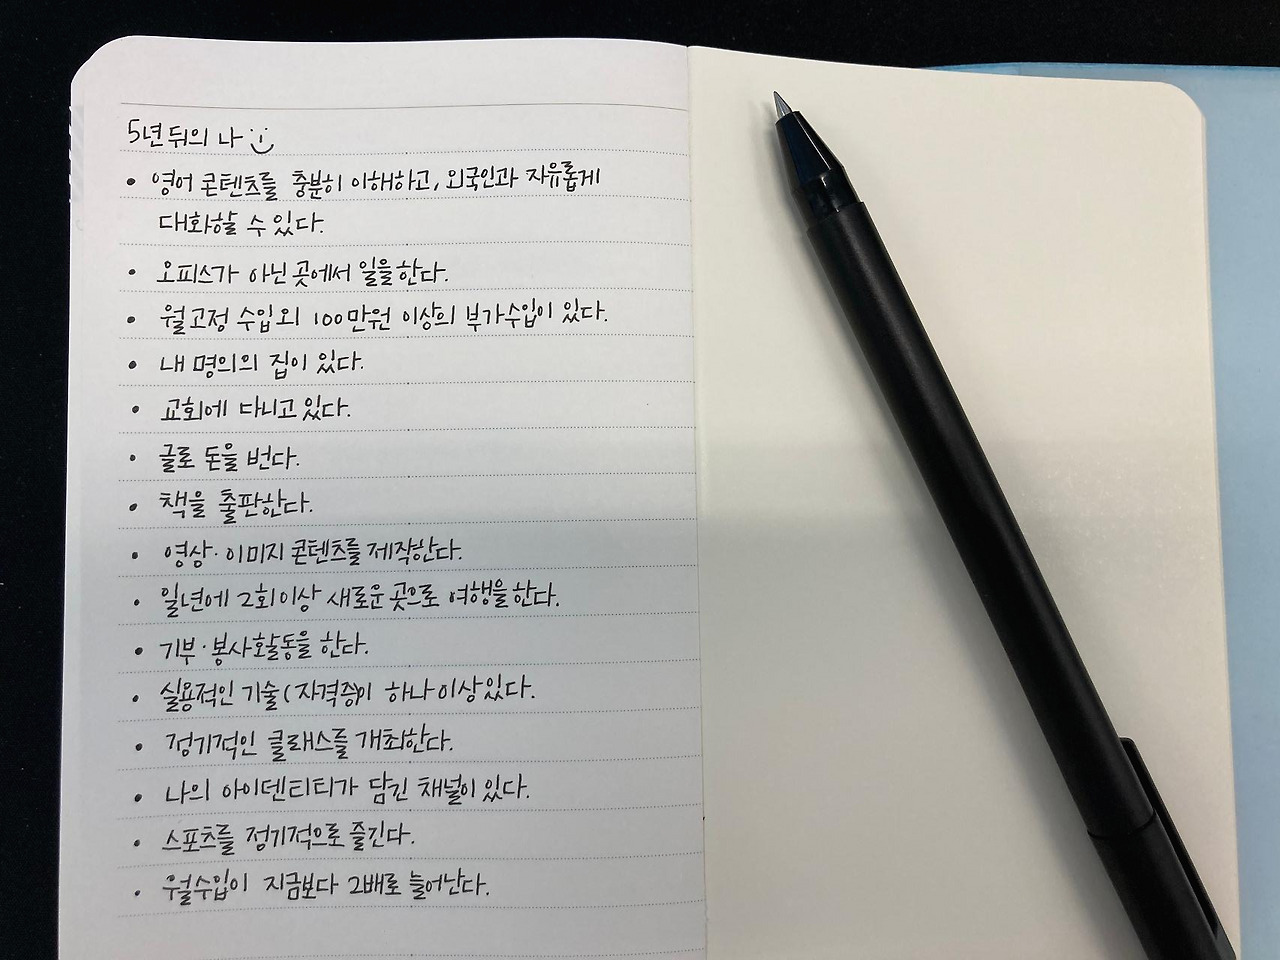 5년 뒤의 나
• 영어 콘텐츠를 충분히 이해하고, 외국인과 자유롭게
대화할 수 있다.
• 오피스가 아닌 곳에서 일을 한다.
• 월 고정 수입 외 100만원 이상의 부가수입이 있다.
• 내 명의의 집이 있다.
• 교회에 다니고 있다.
• 글로 돈을 번다.
• 책을 출판한다.
• 영상·이미지 콘텐츠를 제작한다.
• 일년에 2회이상 새로운 곳으로 여행을 한다.
• 기부·봉사활동을 한다.
• 실용적인 기술(자격증)이 하나 이상 있다.
• 정기적인 클래스를 개최한다.
• 나의 아이덴티티가 담긴 채널이 있다.
• 스포츠를 정기적으로 즐긴다.
• 월수입이 지금보다 2배로 늘어난다.